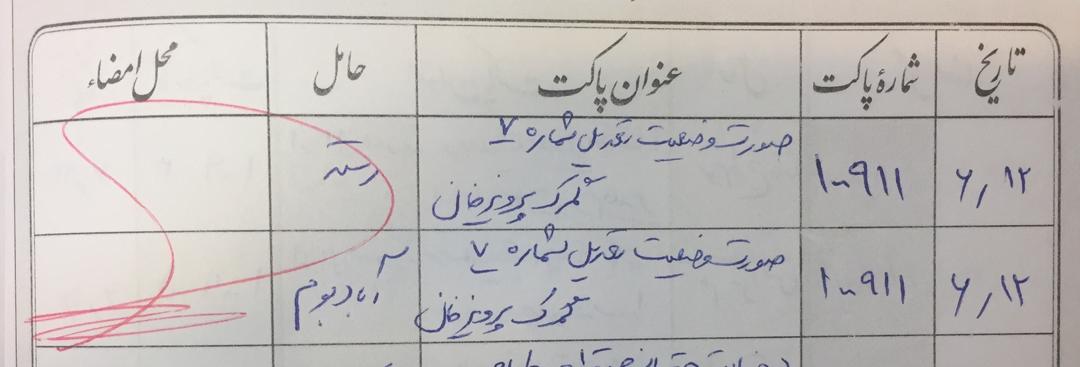 تاریخ شمارهٔ پاکت عنوان پاکت حامل محل امضاء
۶/۱۲ ۱۰۹۱۱ صورت وضعیت تعدیل شماره ۷
گمرک پرویزخان
۶/۱۲ ۱۰۹۱۱ صورت وضعیت تعدیل شماره ۷ آبادبوم
گمرک پرویزخان